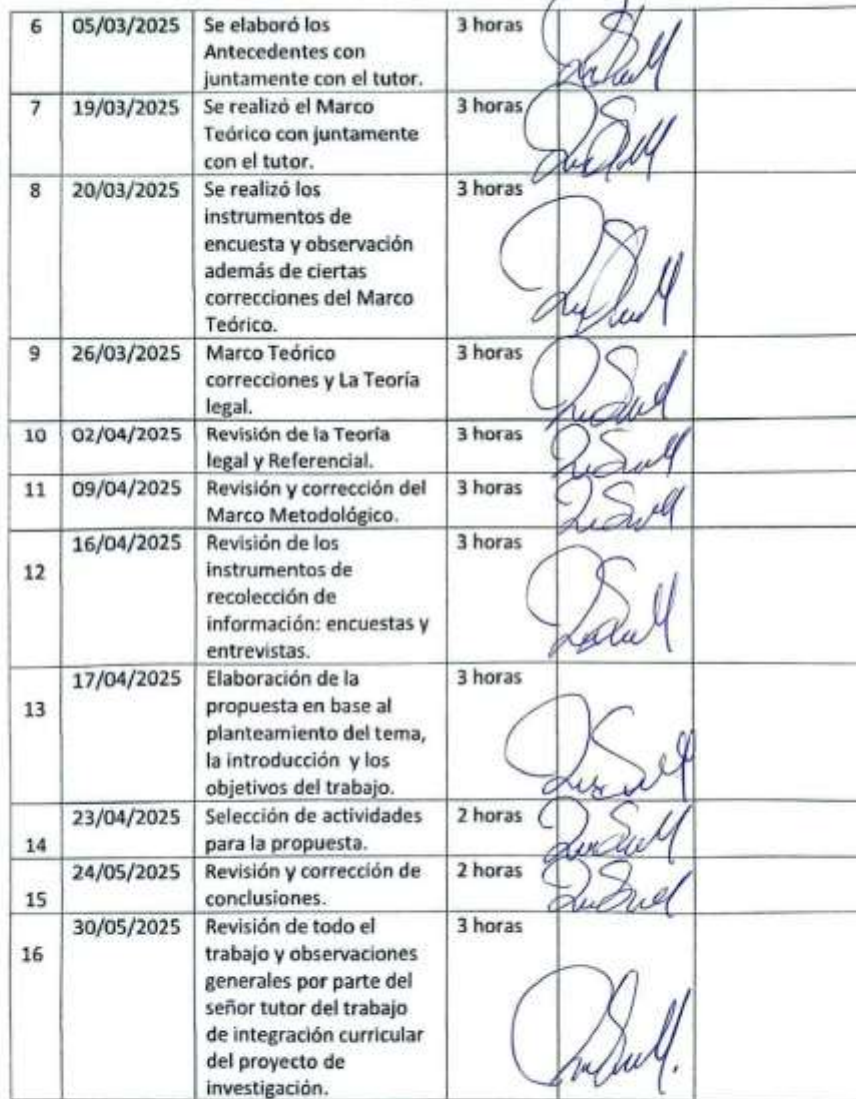 6 05/03/2025 Se elaboró los 3 horas
Antecedentes con
juntamente con el tutor.
7 19/03/2025 Se realizó el Marco 3 horas
Teórico con juntamente
con el tutor.
8 20/03/2025 Se realizó los 3 horas
instrumentos de
encuesta y observación
además de ciertas
correcciones del Marco
Teórico.
9 26/03/2025 Marco Teórico 3 horas
correcciones y La Teoría
legal.
10 02/04/2025 Revisión de la Teoría 3 horas
legal y Referencial.
11 09/04/2025 Revisión y corrección del 3 horas
Marco Metodológico.
12 16/04/2025 Revisión de los 3 horas
instrumentos de
recolección de
información: encuestas y
entrevistas.
13 17/04/2025 Elaboración de la 3 horas
propuesta en base al
planteamiento del tema,
la introducción y los
objetivos del trabajo.
14 23/04/2025 Selección de actividades 2 horas
para la propuesta.
15 24/05/2025 Revisión y corrección de 2 horas
conclusiones.
16 30/05/2025 Revisión de todo el 3 horas
trabajo y observaciones
generales por parte del
señor tutor del trabajo
de integración curricular
del proyecto de
investigación.